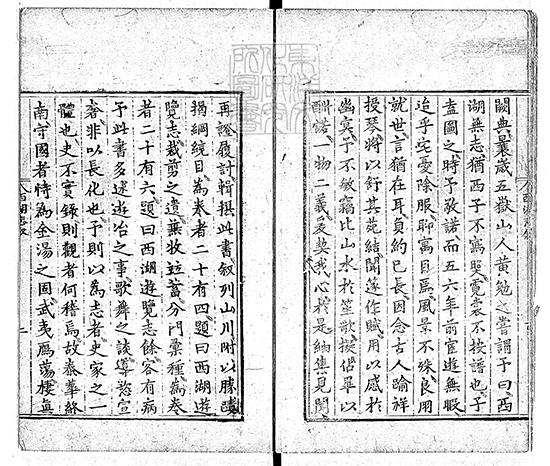 闕典曩歲五嶽山人黃勉之嘗謂予曰西
湖無志猶西子不寫照霓裳不按譜也子
盍圖之時予敬諾而五六年前宦遊無暇
迨乎宅憂除服聊寓目焉風景不殊良朋
就世言猶在耳負約已長因念古人踰祥
授琴將以舒其菀結聞篴作賦用以感於
幽冥予不敏竊比山水於笙歌擬佔畢以
酬諾一物二義交契我心於是紬集見聞
再證履討輯撰此書敘列山川附以勝蹟
揭綱統目為卷者二十有四題曰西湖遊
覽志裁剪之遺兼收並蓄分門彙種為卷
者二十有六題曰西湖遊覽志餘客有病
予此書多述遊冶之事歌舞之談導慾宣
奢非以長化也予則以為志者史家之一
體也史不實錄則觀者何稽焉故泰華終
南守國者恃為金湯之固武夷鴈蕩棲真
西湖志敘
二